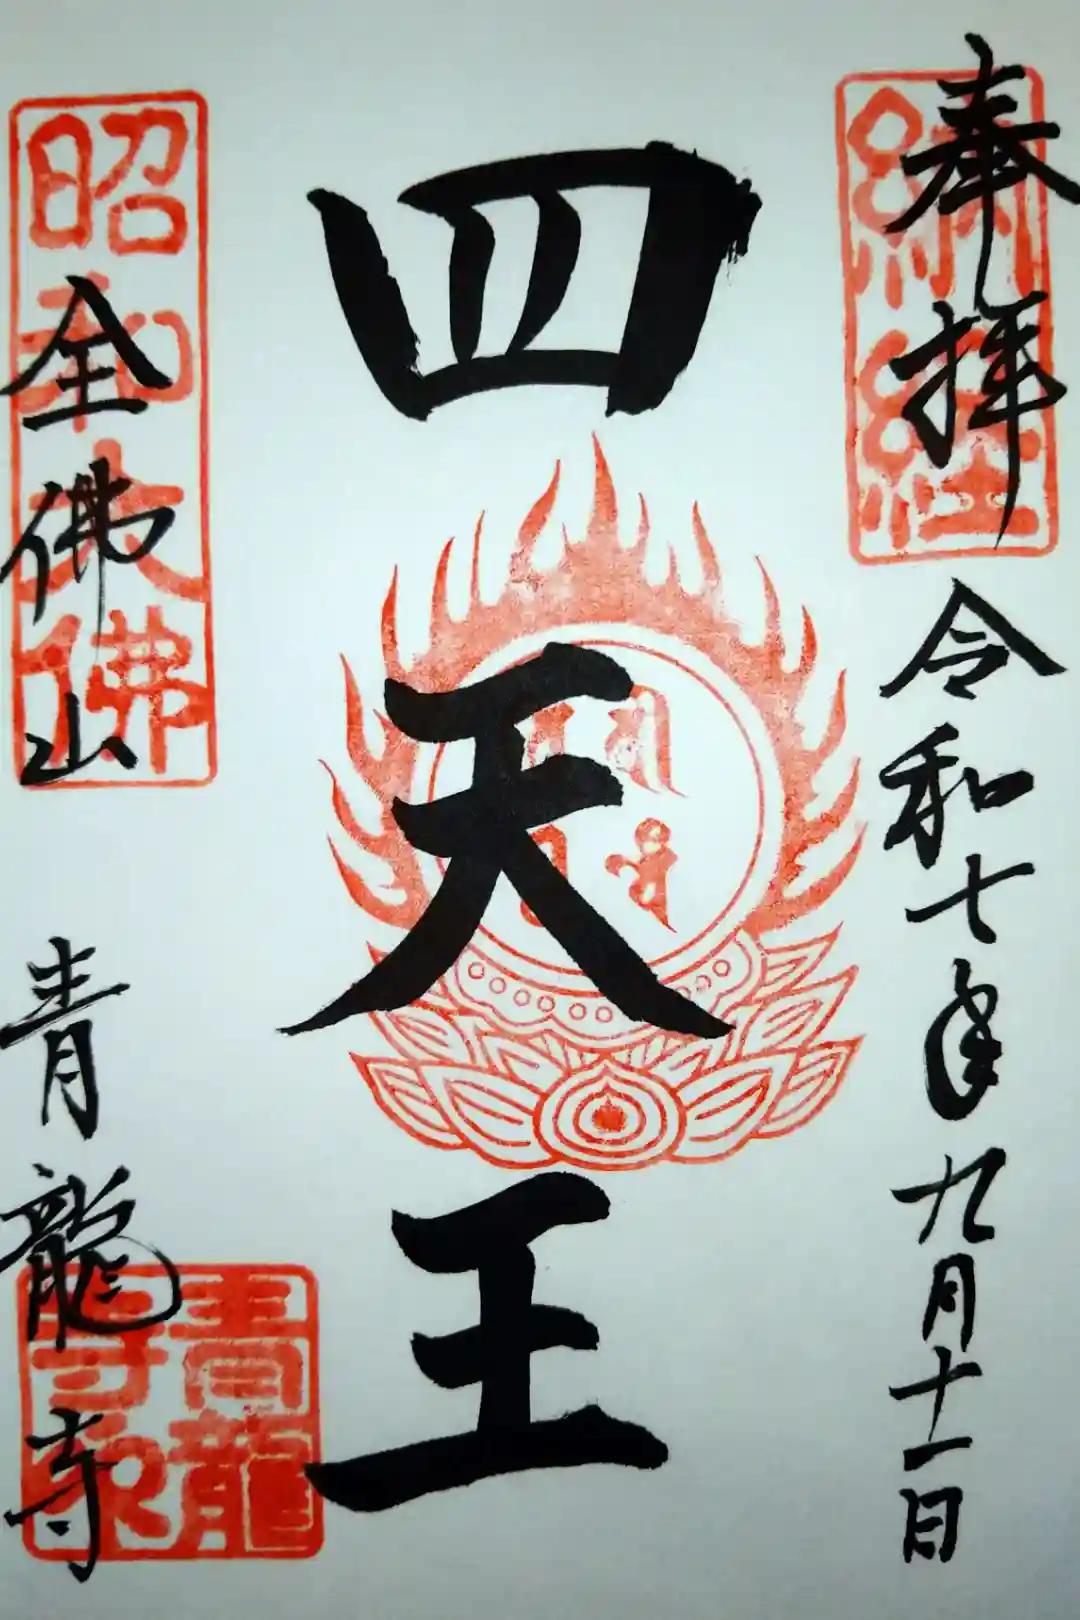 奉拝
令和七年九月十一日
納経
四天王
昭和大佛
全佛山
青龍寺
青龍寺印